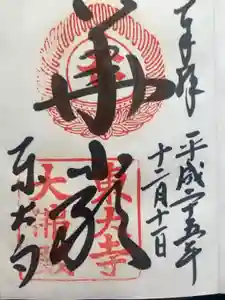 奉拝
平成二十五年
十二月十一日
華嚴
東大寺
東大寺
大佛殿